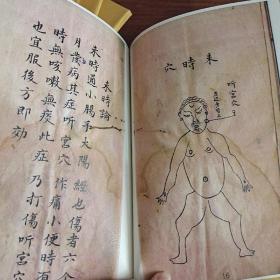 未時穴
听宮穴
16
未時論
未時過小腸手太陽經也傷者六个
月發病其症听宮穴作痛小便時有
時無咳嗽無痰此症乃打傷听宮
也宜服後方即効